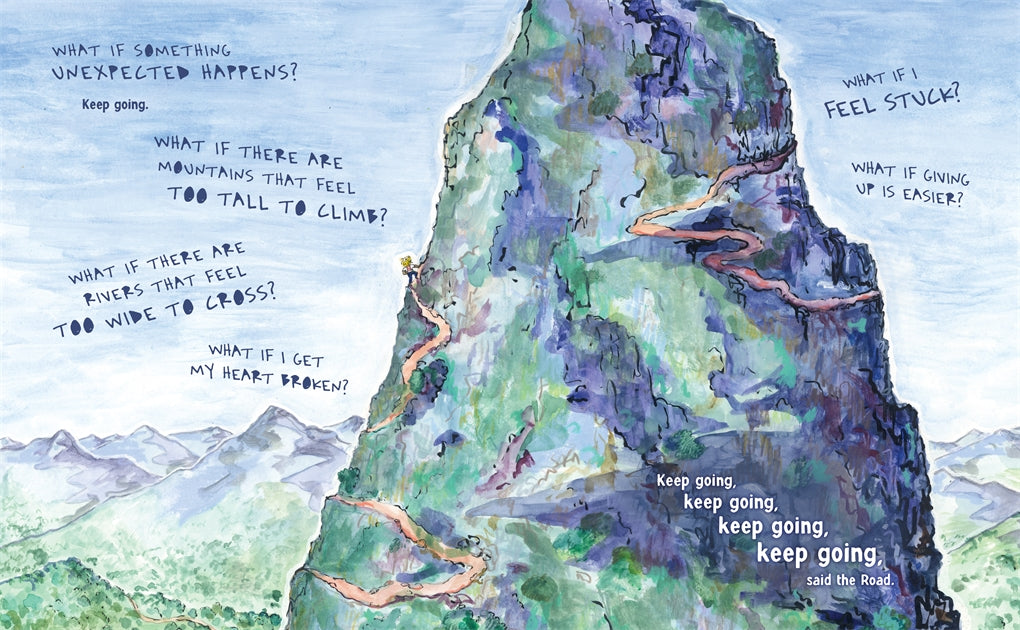 WHAT IF SOMETHING
UNEXPECTED HAPPENS?
Keep going.
WHAT IF THERE ARE
MOUNTAINS THAT FEEL
TOO TALL TO CLIMB?
WHAT IF THERE ARE
RIVERS THAT FEEL
TOO WIDE TO CROSS?
WHAT IF I GET
MY HEART BROKEN?
WHAT IF I
FEEL STUCK?
WHAT IF GIVING
UP IS EASIER?
Keep going,
keep going,
keep going,
keep going,
said the Road.